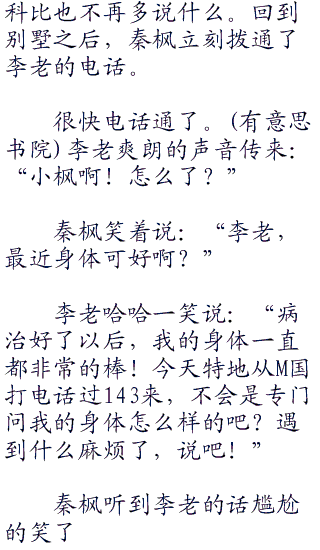 科比也不再多说什么。回到
别墅之后，秦枫立刻拨通了
李老的电话。
很快电话通了。(有意思
书院)李老爽朗的声音传来：
“小枫啊！怎么了？”
秦枫笑着说：“李老，
最近身体可好啊？”
李老哈哈一笑说：“病
治好了以后，我的身体一直
都非常的棒！今天特地从M国
打电话过143来，不会是专门
问我的身体怎么样的吧？遇
到什么麻烦了，说吧！”
秦枫听到李老的话尴尬
的笑了